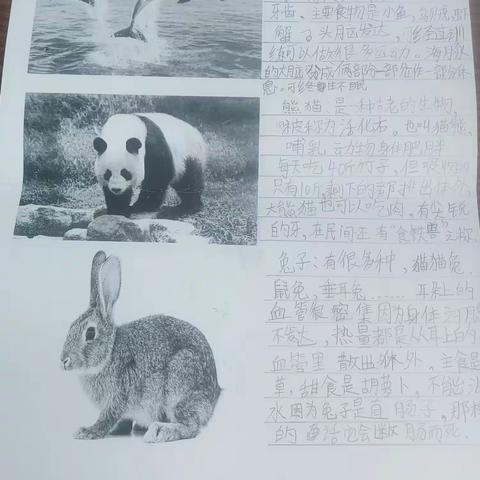 牙齿。主要食物是小鱼,乌贼,虾
蟹 。头脑发达,经过训
练可以做很多运动。海豚
的大脑分成俩部份一部分工作一部分休
息。可终生不眠
熊猫:是一种古老的生物,
被称为活化石。也叫猫熊,
哺乳动物身体肥胖
每天吃40斤竹子,但吸收
只有10斤剩下的都排出体外。
大熊猫也可以吃肉。有尖锐
的牙。在民间还有“食铁兽”之称
兔子:有很多种,猫猫兔,
鼠兔,垂耳兔……耳朵上的
血管很密集因为身体汗腺
不发达,热量都是从耳上的
血管里散出体外,主食是
草,甜食是胡萝卜,不能出
水因为兔子是直肠子,那样
的话也会断肠而死.